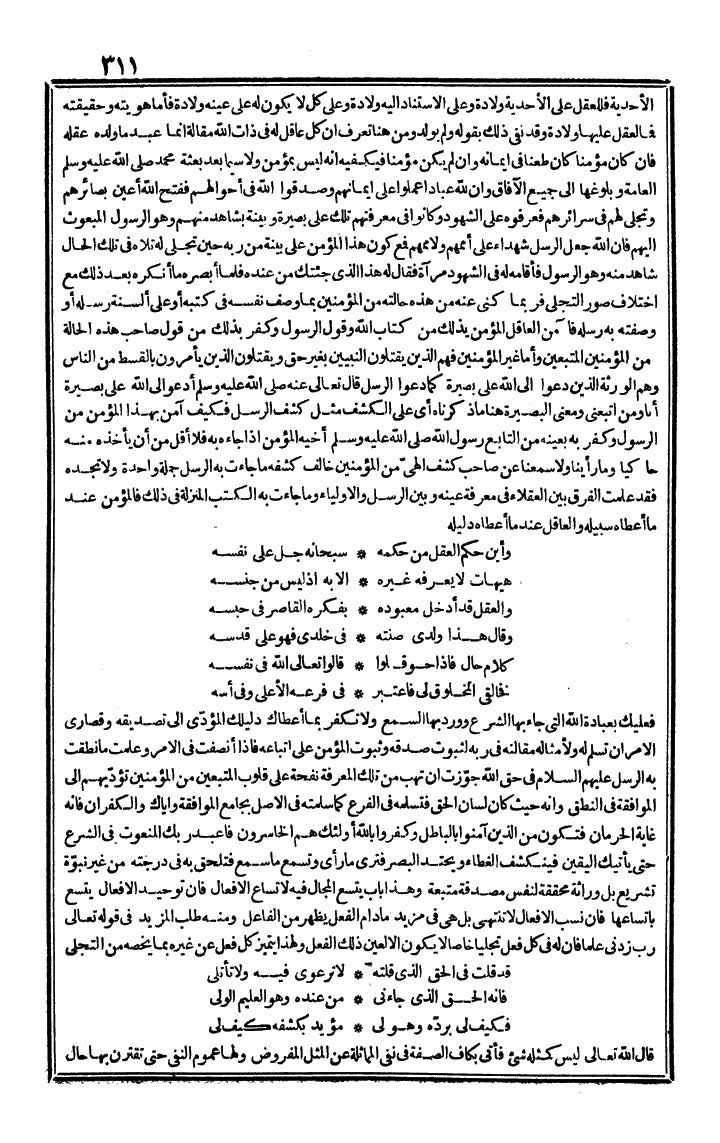 ٣١١
الأحدية فللعقل على الأحدية ولادة وعلى الاستناد اليه ولادة وعلى كل لا يكون له على عينه ولادة فأما هويته وحقيقته
فما للعقل عليها ولادة وقد نفى ذلك بقوله ولم يولد ومن هنا تعرف ان كل عاقل له فى ذات الله مقالة انما عبد ما ولده عقله
فان كان مؤمنا كان طعنا فى ايمانه وان لم يكن مؤمنا فيكفيه انه ليس بمؤمن ولا سيما بعد بعثة محمد صلى الله عليه وسلم
العامة وبلوغها الى جميع الآفاق وان لله عبادا عملوا على ايمانهم وصدقوا الله فى أحوالهم ففتح الله أعين بصائرهم
وتجلى لهم فى سرائرهم فعرفوه على الشهود وكانوا فى معرفتهم تلك على بصيرة وبينة بشاهد منهم وهو الرسول المبعوث
اليهم فان الله جعل الرسل شهداء على أممهم ولأممهم فمع كون هذا المؤمن على بينة من ربه حين تجلى له تلاه فى تلك الحال
شاهد منه وهو الرسول فأقامه له فى الشهود مرآة فقال له هذا الذى جئتك من عنده فلما أبصره ما أنكره بعد ذلك مع
اختلاف صور التجلى فربما كنى عنه من هذه حالته من المؤمنين بما وصف نفسه فى كتبه أو على ألسنة رسله أو
وصفته به رسله فآمن العاقل المؤمن بذلك من كتاب الله وقول الرسول وكفر بذلك من قول صاحب هذه الحالة
من المؤمنين المتبعين وأما غير المؤمنين فهم الذين يقتلون النبيين بغير حق ويقتلون الذين يأمرون بالقسط من الناس
وهم الورثة الذين دعوا الى الله على بصيرة كما دعوا الرسل قال تعالى عنه صلى الله عليه وسلم أدعو الى الله على بصيرة
أنا ومن اتبعنى ومعنى البصيرة هنا ما ذكرناه أى على الكشف مثل كشف الرسل فكيف آمن بهذا المؤمن من
الرسول وكفر به بعينه من التابع رسول الله صلى الله عليه وسلم أخيه المؤمن اذا جاءه به فلا أقل من أن يأخذه منه
حاكيا وما رأينا ولا سمعنا عن صاحب كشف الهىّ من المؤمنين خالف كشفه ما جاءت به الرسل جملة واحدة ولا تجده
فقد علمت الفرق بين العقلاء فى معرفة عينه وبين الرسل والاولياء وما جاءت به الكتب المنزلة فى ذلك فالمؤمن عند
ما أعطاه سبيله والعاقل عند ما أعطاه دليله
وأين حكم العقل من حكمه * سبحانه جل على نفسه
هيهات لا يعرفه غيره * الا به اذ ليس من جنسه
والعقل قد أدخل معبوده * بفكره القاصر فى حبسه
وقال هذا ولدى صنته * فى خلدى فهو على قدسه
كلام حال فاذا حوقلوا * قالوا تعالى الله فى نفسه
نخالقى المخلوق لى فاعتبر * فى فرعه الأعلى وفى أسه
فعليك بعبادة الله التى جاء بها الشرع وورد بها السمع ولا تكفر بما أعطاك دليلك المؤدّى الى تصديقه وقصارى
الامر ان تسلم له ولأمثاله مقالته فى ربه لثبوت صدقه وثبوت المؤمن على اتباعه فاذا أنصفت فى الامر وعلمت ما نطقت
به الرسل عليهم السلام فى حق الله جوّزت ان تهب من تلك المعرفة نفحة على قلوب المتبعين من المؤمنين تؤدّيهم الى
الموافقة فى النطق وانه حيث كان لسان الحق فتسلمه فى الفرع كما سلمته فى الاصل بجامع الموافقة واياك والكفران فانه
غاية الحرمان فتكون من الذين آمنوا بالباطل وكفروا بالله أولئك هم الخاسرون فاعبد ربك المنعوت فى الشرع
حتى يأتيك اليقين فينكشف الغطاء ويحتد البصر فترى ما رأى وتسمع ما سمع فتلحق به فى درجته من غير نبوّة
تشريع بل وراثة محققة لنفس مصدقة متبعة وهذا باب يتسع المجال فيه لاتساع الافعال فان توحيد الافعال يتسع
باتساعها فان نسب الافعال لا تنتهى بل هى فى مزيد ما دام الفعل يظهر من الفاعل ومنه طلب المزيد فى قوله تعالى
رب زدنى علما فان له فى كل فعل تجليا خاصا لا يكون الا لعين ذلك الفعل ولهذا يتميز كل فعل عن غيره بما يخصه من التجلى
قد قلت فى الحق الذى قلته * لا ترعوى فيه ولا تأتلى
فانه الحق الذى جاءنى * من عنده وهو العليم الولى
فكيف لى بردّه وهو لى * مؤيد بكشفه كيف لى
قال الله تعالى ليس كمثله شئ فأتى بكاف الصفة فى نفى المماثلة عن المثل المفروض ولها عموم النفى حتى تقترن بها حال